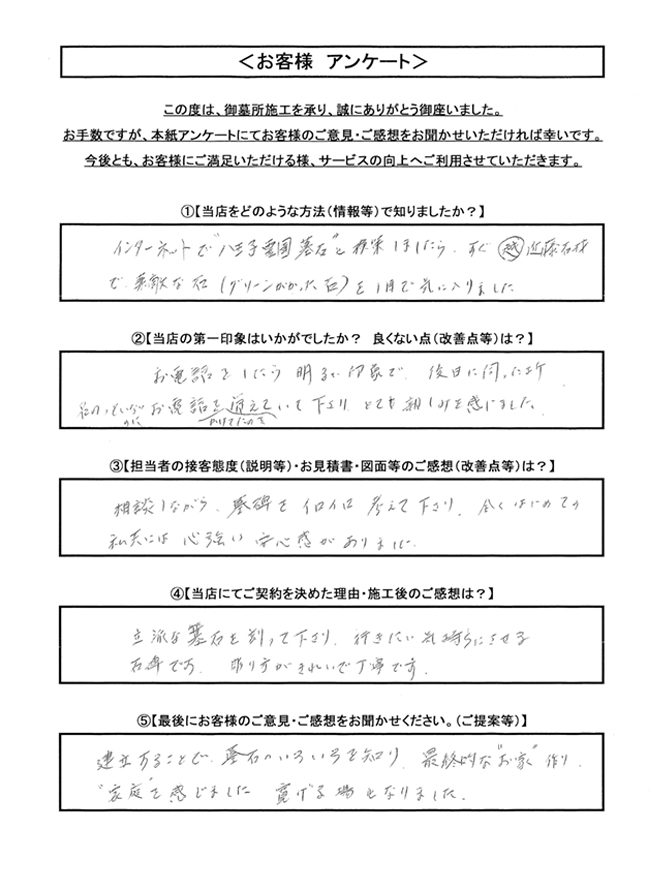 <お客様 アンケート>
この度は、御墓所施工を承り、誠にありがとう御座いました。
お手数ですが、本紙アンケートにてお客様のご意見・ご感想をお聞かせいただければ幸いです。
今後とも、お客様にご満足いただける様、サービスの向上へご利用させていただきます。
①【当店をどのような方法(情報等)で知りましたか?】
インターネットで"八王子霊園墓石"と検索しましたら、すぐ㋱近藤石材
で、素敵な石(グリーンがかった石)を1目で気に入りました
②【当店の第一印象はいかがでしたか? 良くない点(改善点等)は?】
お電話をしたら明るい印象で、後日に伺った所
お電話を覚えていて下さり、とても親しみを感じました。
かけてたのを
③【担当者の接客態度(説明等)・お見積書・図面等のご感想(改善点等)は?】
相談しながら、墓碑をイロイロ考えて下さり、全くはじめての
私共には心強い安心感がありました。
④【当店にてご契約を決めた理由・施工後のご感想は?】
立派な墓石を創って下さり、行きたい気持ちにさせる
石碑です。彫り方がきれいで丁寧です。
⑤【最後にお客様のご意見・ご感想をお聞かせください。(ご提案等)】
建立することで、墓石のいろいろを知り、最終的な"お家"作り、
"家庭"を感じました 寛げる場となりました。